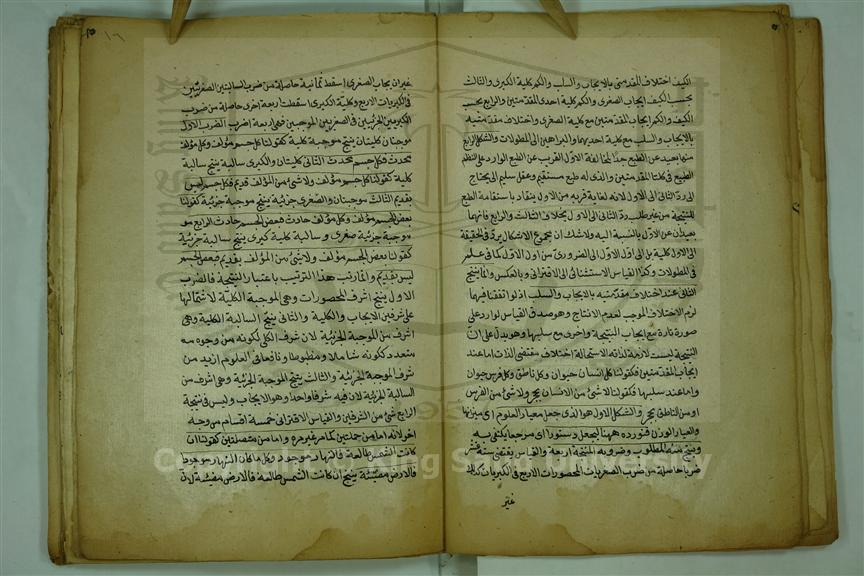 الكيف اختلاف المقدمتين بالايجاب والسلب والكم كلية الكبرى والثالث
بحسب الكيف ايجاب الصغرى والكم كلية احدى المقدمتين والرابع بحسب
الكيف والكم ايجاب المقدمتين مع كلية الصغرى واختلاف مقدمتيه
بالايجاب والسلب مع كلية احديهما والبراهين الى المطولات والشكل الرابع
منها بعيد عن الطبع جدا لمخالفة الاول القريب عن الطبع الوارد على النظم
الطبيعي في كلتا المقدمتين والذى له طبع مستقيم وعقل سليم لا يحتاج
الى رد الثانى الى الاول لانه لغاية قربه من الاول ينقاد باستقامة الطبع
للنتيجة من غير طلب رد الثانى الى الاول بخلاف الثالث والرابع فانهما
بعيدان عن الاول بالنسبة اليه ولا شك ان مجموع الاشكال يرد في الحقيقة
الى الاول كلية بل الى اول الاول الى الضرورى من اول الاول كما في علم
في المطولات وكذا القياس الاستثنائى الى الاقترانى وبالعكس وانما ينتج
الثانى عند اختلاف مقدمتيه بالايجاب والسلب اذ لو اتفقتا فيهما
لزم الاختلاف الموجب لعدم الانتاج وهو صدق القياس لوارد على
صورة تارة مع ايجاب النتيجة واخرى مع سلبها وهو يدل على ان
النتيجة ليست لازمة لذاته لاستحالة اختلاف مقتضى الذات اما عند
ايجاب المقدمتين فكقولنا كل انسان حيوان وكل ناطق وكل فرس حيوان
واما عند سلبهما فكقولنا لا شئ من الانسان بحجر ولا شئ من الفرس
او من الناطق بحجر والشكل الاول هو الذى جعل معيار العلوم اى ميزانها
والعيار الوزن فنورده ههنا ليجعل دستورا اى مرجعا يكتفى به
وينتج منه المطلوب وضروبه المنتجة اربعة والقياس يقتضى ستة عشر
ضربا حاصلة من ضرب الصغريات المحصورات الاربع في الكبريات كذلك
غير
١٦
غير ان ايجاب الصغرى اسقط ثمانية حاصلة من ضرب السالبتين الصغريتين
في الكبريات الاربع وكلية الكبرى اسقطت اربعة اخرى حاصلة من ضرب
الكبريين الجزئيتين في الصغريين الموجبتين فهى اربعة اضرب الضرب الاول
موجبتان كليتان ينتج موجبة كلية كقولنا كل جسم مؤلف وكل مؤلف
محدث فكل جسم محدث الثانى كليتان والكبرى سالبة ينتج سالبة
كلية كقولنا كل جسم مؤلف ولا شئ من المؤلف قديم فكل جسم ليس
بقديم الثالث موجبتان والصغرى جزئية ينتج موجبة جزئية كقولنا
بعض الجسم مؤلف وكل مؤلف حادث فبعض الجسم حادث الرابع مو
موجبة جزئية صغرى وسالبة كلية كبرى ينتج سالبة جزئية
كقولنا بعض الجسم مؤلف ولا شئ من المؤلف بقديم فبعض الجسم
ليس بقديم وانما رتب هذا الترتيب باعتبار النتيجة فالضرب
الاول ينتج اشرف المحصورات وهى الموجبة الكلية لاشتمالها
على شرفين الايجاب والكلية والثانى ينتج السالبة الكلية وهى
اشرف من الموجبة الجزئية لان شرف الكل لكونه من وجوه
متعدد ككونه شاملا ومضبوطا ونافعا في العلوم ازيد من
شرف الموجبة الجزئية والثالث ينتج الموجبة الجزئية وهى اشرف من
السالبة الجزئية لان فيه شرفا واحدا وهو الايجاب وليس في نتيجة
الرابع شئ من الشرفين والقياس الاقترانى خمسة اقسام من وجه
اخر لانه اما من حمليتين كما مر غير مرة واما من متصلتين كقولنا ان
كانت الشمس طالعة فالنهار موجود وكلما كان النهار موجودا
فالارض مضيئة ينتج ان كانت الشمس طالعة فالارض مضيئة لان